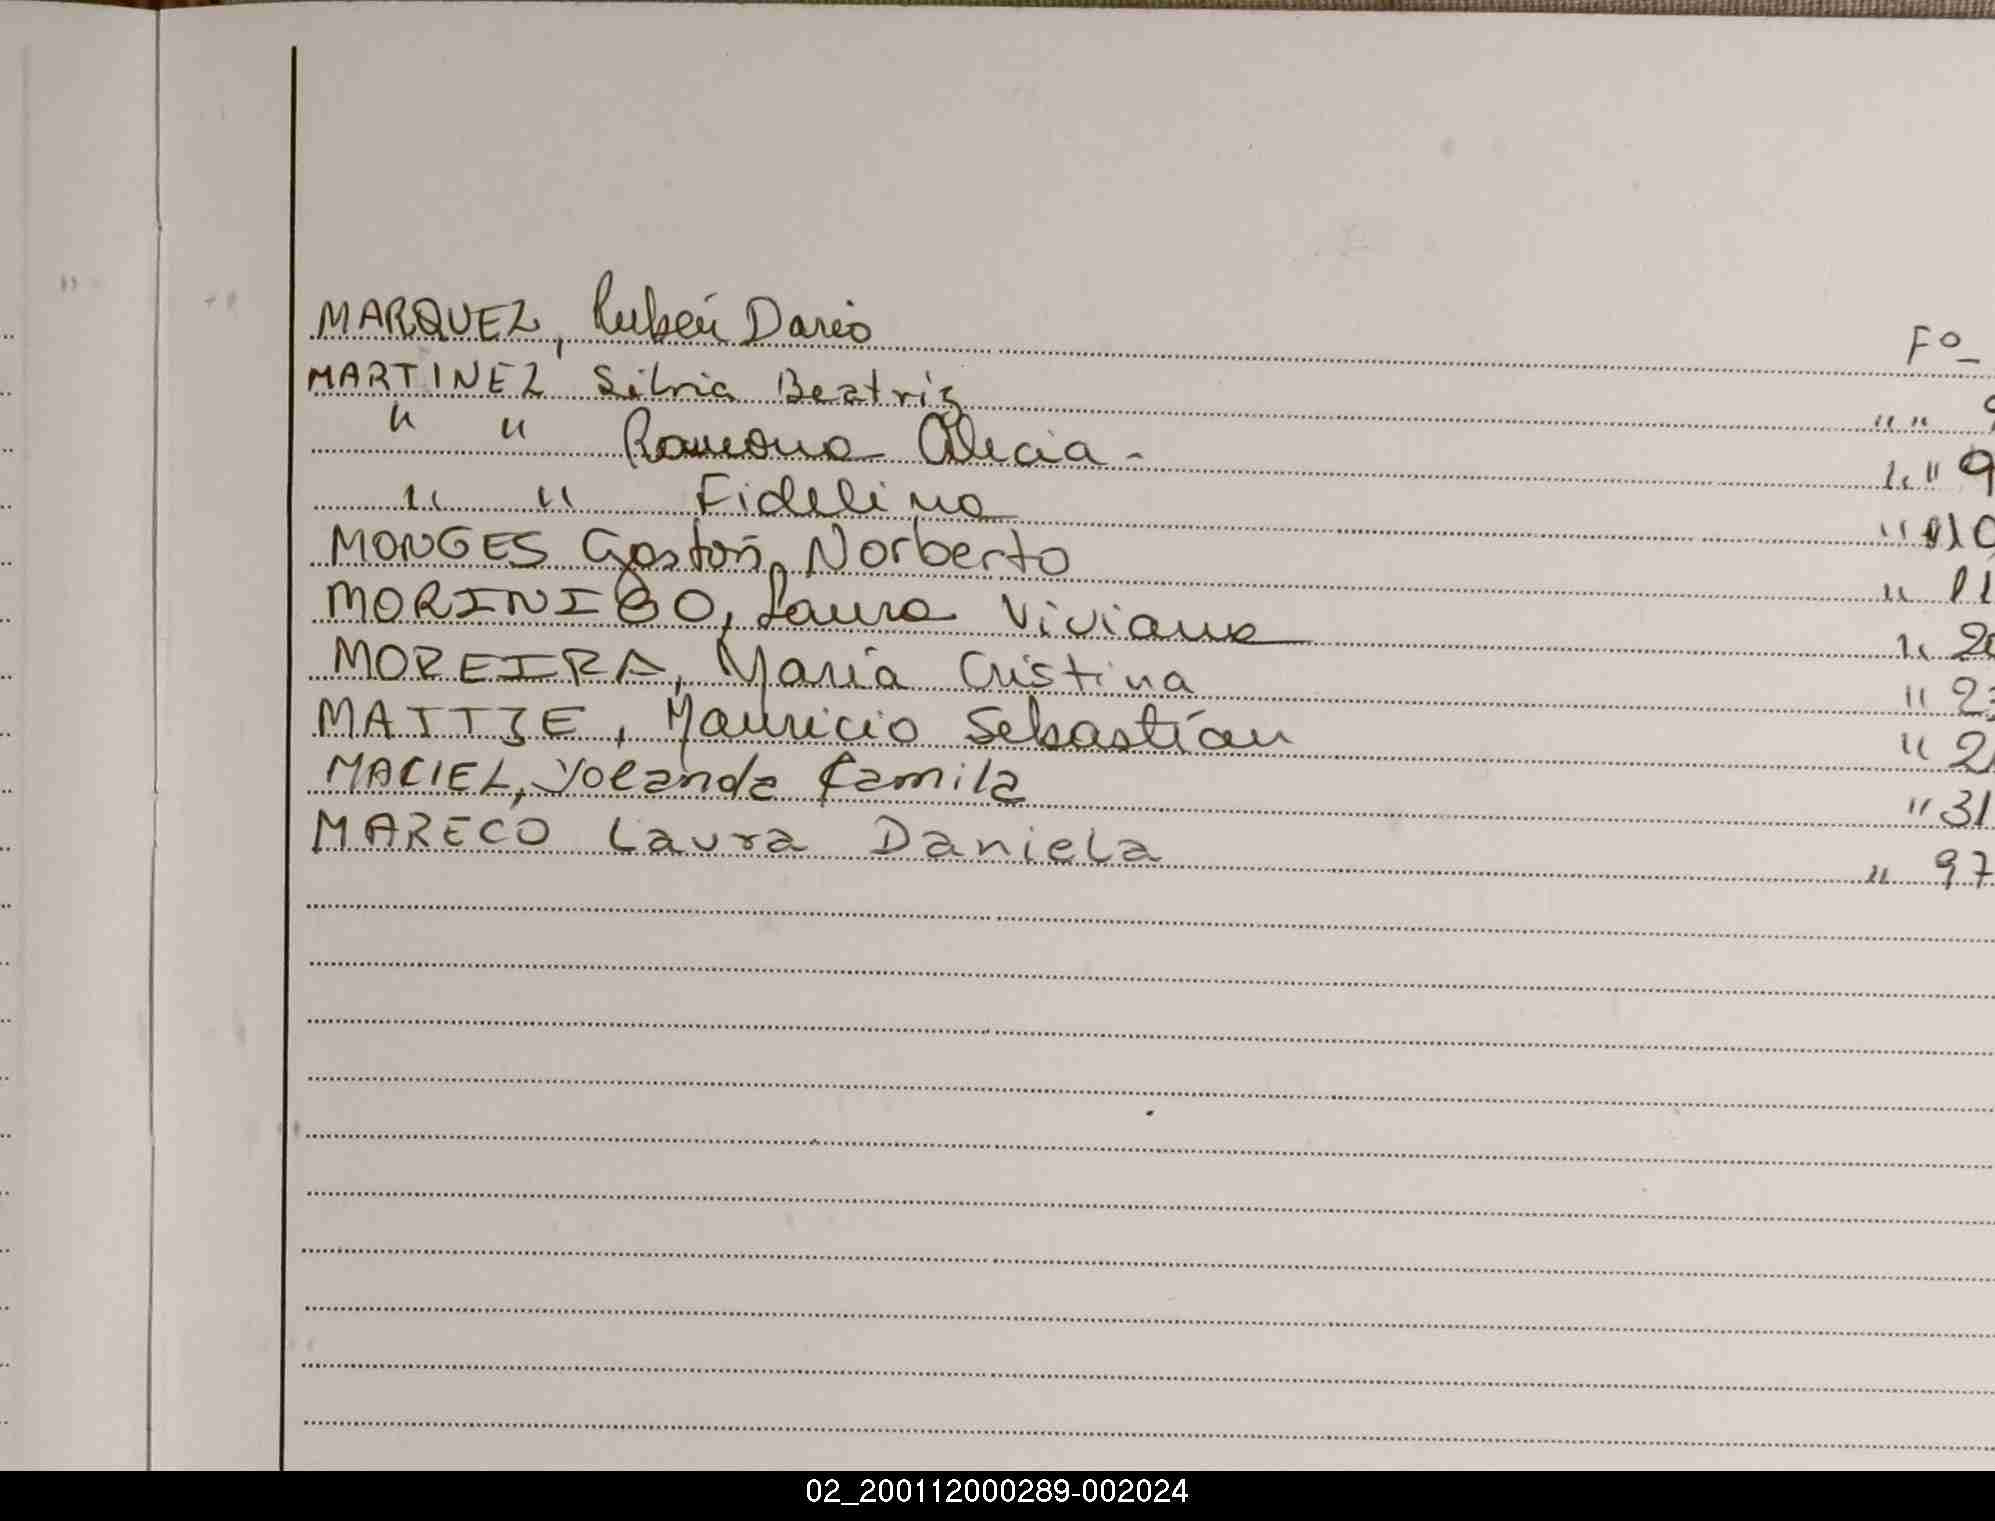 MARQUEZ, Rubén Dario Fº
MARTINEZ Silvia Beatriz " " 9
" " Ramona Alicia - " " 9
" " Fidelina " 10
MONGES Gastón Norberto " 11
MORINIGO, Laura Viviana " 20
MOREIRA, María Cristina " 23
MATTJE, Mauricio Sebastían " 2
MACIEL, Yolanda Camila " 31
MARECO Laura Daniela " 97
02_200112000289-002024